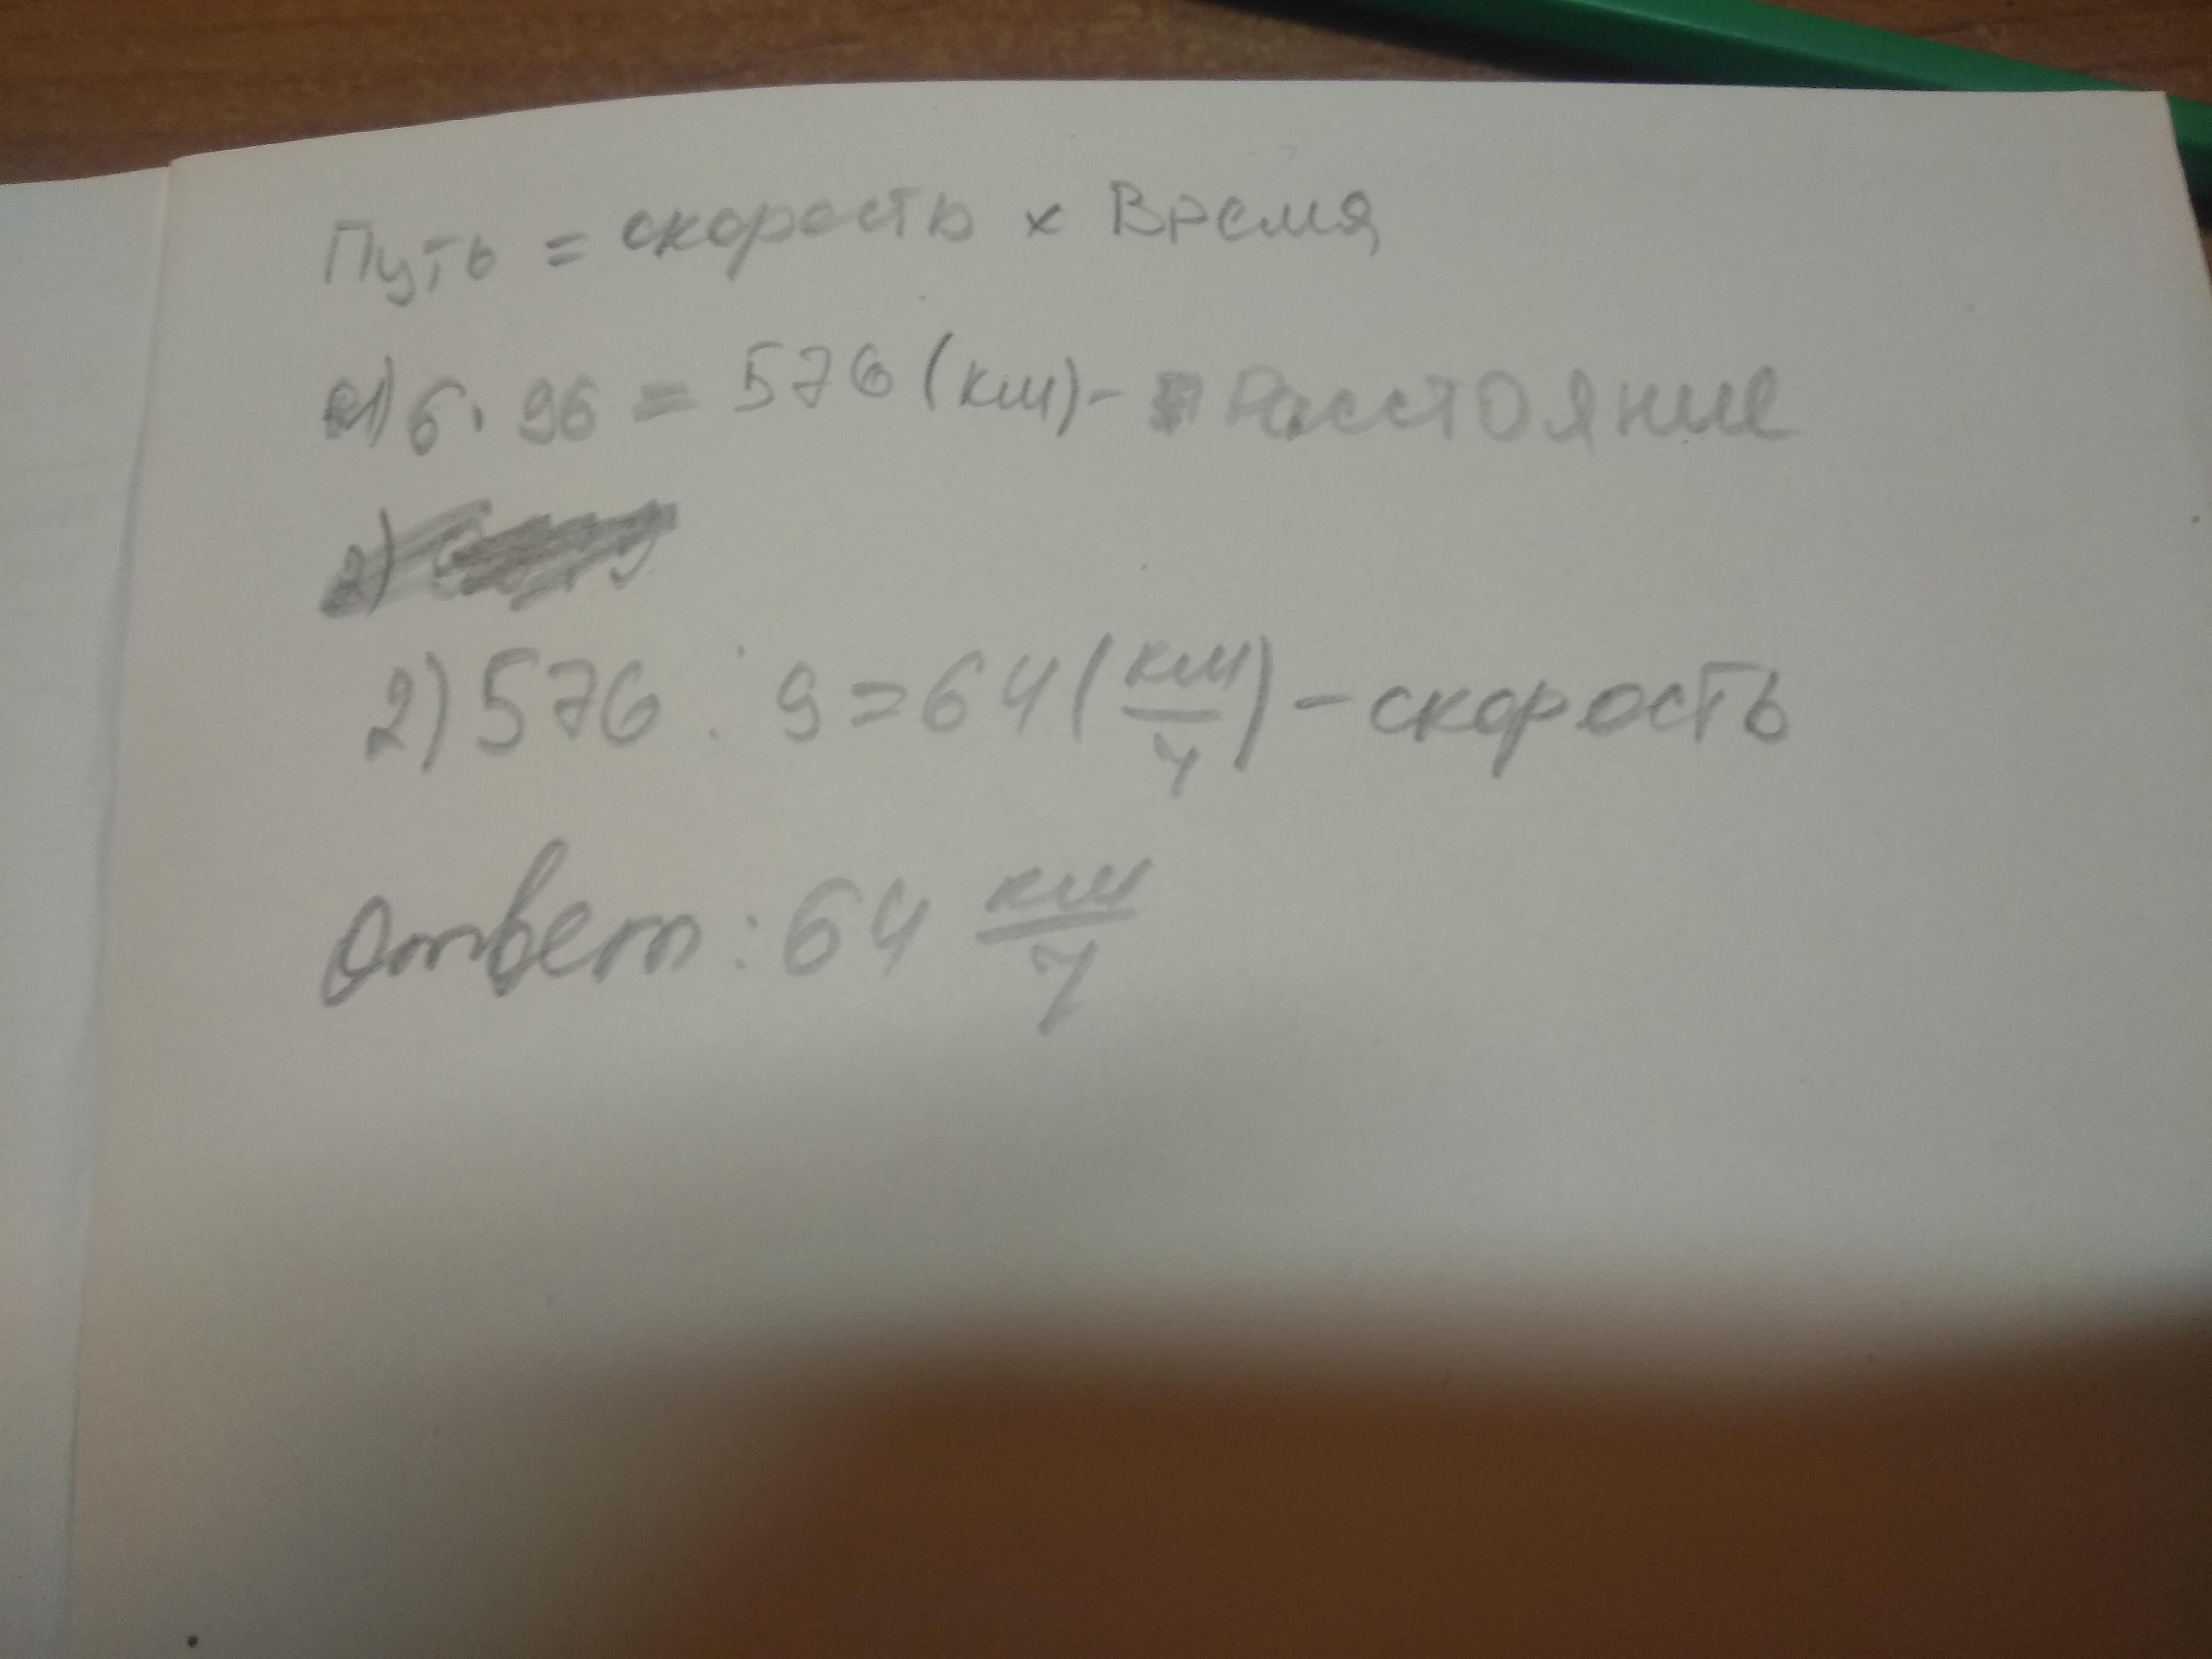 Путь = скорость x Время
1) 6 · 96 = 576 (км) - Расстояние
2)
2) 576 : 9 = 64 (км/ч) - скорость
Ответ: 64 км/ч